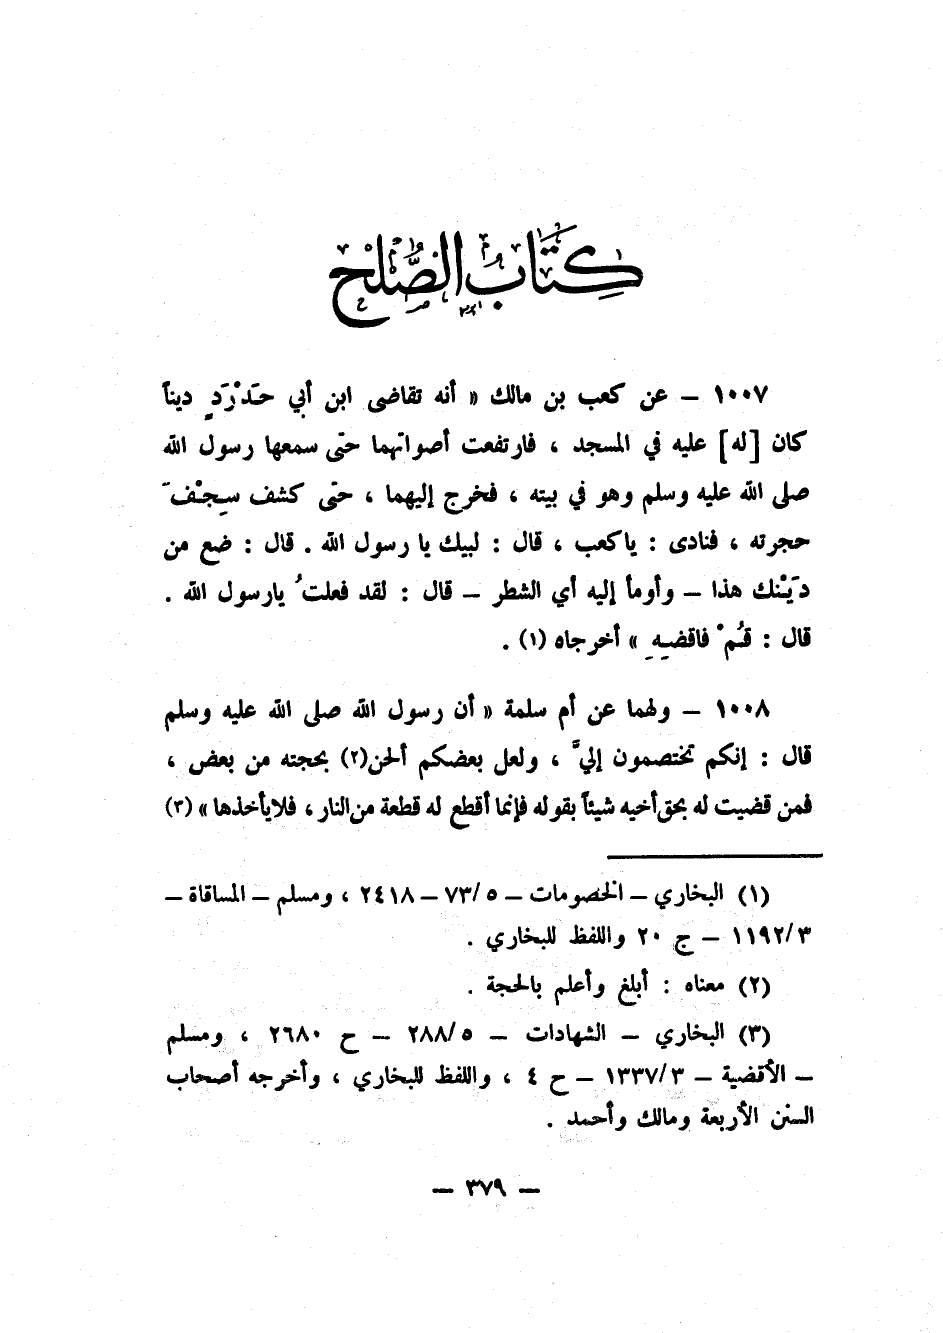 كِتَابُ الصُّلْحِ
١٠٠٧ – عن كعب بن مالك « أنه تقاضى ابن أبي حَدْرَدٍ ديناً
كان [له] عليه في المسجد ، فارتفعت أصواتهما حتى سمعها رسول الله
صلى الله عليه وسلم وهو في بيته ، فخرج إليهما ، حتى كشف سِجْفَ
حجرته ، فنادى : ياكعب ، قال : لبيك يا رسول الله . قال : ضع من
دَيْنك هذا – وأومأ إليه أي الشطر – قال : لقد فعلتُ يارسول الله .
قال : قُمْ فاقضِهِ » أخرجاه (١) .
١٠٠٨ – ولهما عن أم سلمة « أن رسول الله صلى الله عليه وسلم
قال : إنكم تختصمون إليَّ ، ولعل بعضكم ألحن(٢) بحجته من بعض ،
فمن قضيت له بحق أخيه شيئاً بقوله فإنما أقطع له قطعة من النار ، فلا يأخذها » (٣)
(١) البخاري – الخصومات – ٧٣/٥ – ٢٤١٨ ، ومسلم – المساقاة –
١١٩٢/٣ – ج ٢٠ واللفظ للبخاري .
(٢) معناه : أبلغ وأعلم بالحجة .
(٣) البخاري – الشهادات – ٢٨٨/٥ – ح ٢٦٨٠ ، ومسلم
– الأقضية – ١٣٣٧/٣ – ح ٤ ، واللفظ للبخاري ، وأخرجه أصحاب
السنن الأربعة ومالك وأحمد .
– ٣٧٩ –